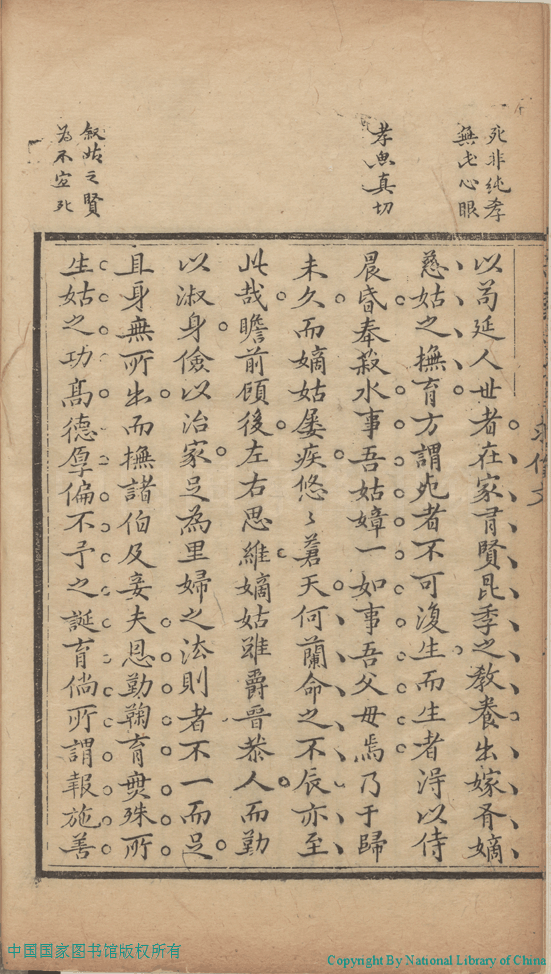 死非純孝
無此心眼
孝思真切
叙姑之賢
為不宜死
以苟延人世者在家有賢昆季之教養出嫁有嫡
慈姑之撫育方謂死者不可復生而生者得以侍
晨昏奉菽水事吾姑嫜一如事吾父母焉乃于歸
未久而嫡姑屡疾悠〻蒼天何蘭命之不辰亦至
此哉瞻前顧後左右思維嫡姑雖爵晉恭人而勤
以淑身儉以治家足為里婦之法則者不一而足
且身無所出而撫諸伯及妾夫恩勤鞠育無殊所
生姑之功髙德厚偏不予之誕育倘所謂報施善
中国国家图书馆版权所有
Copyright By National Library of China